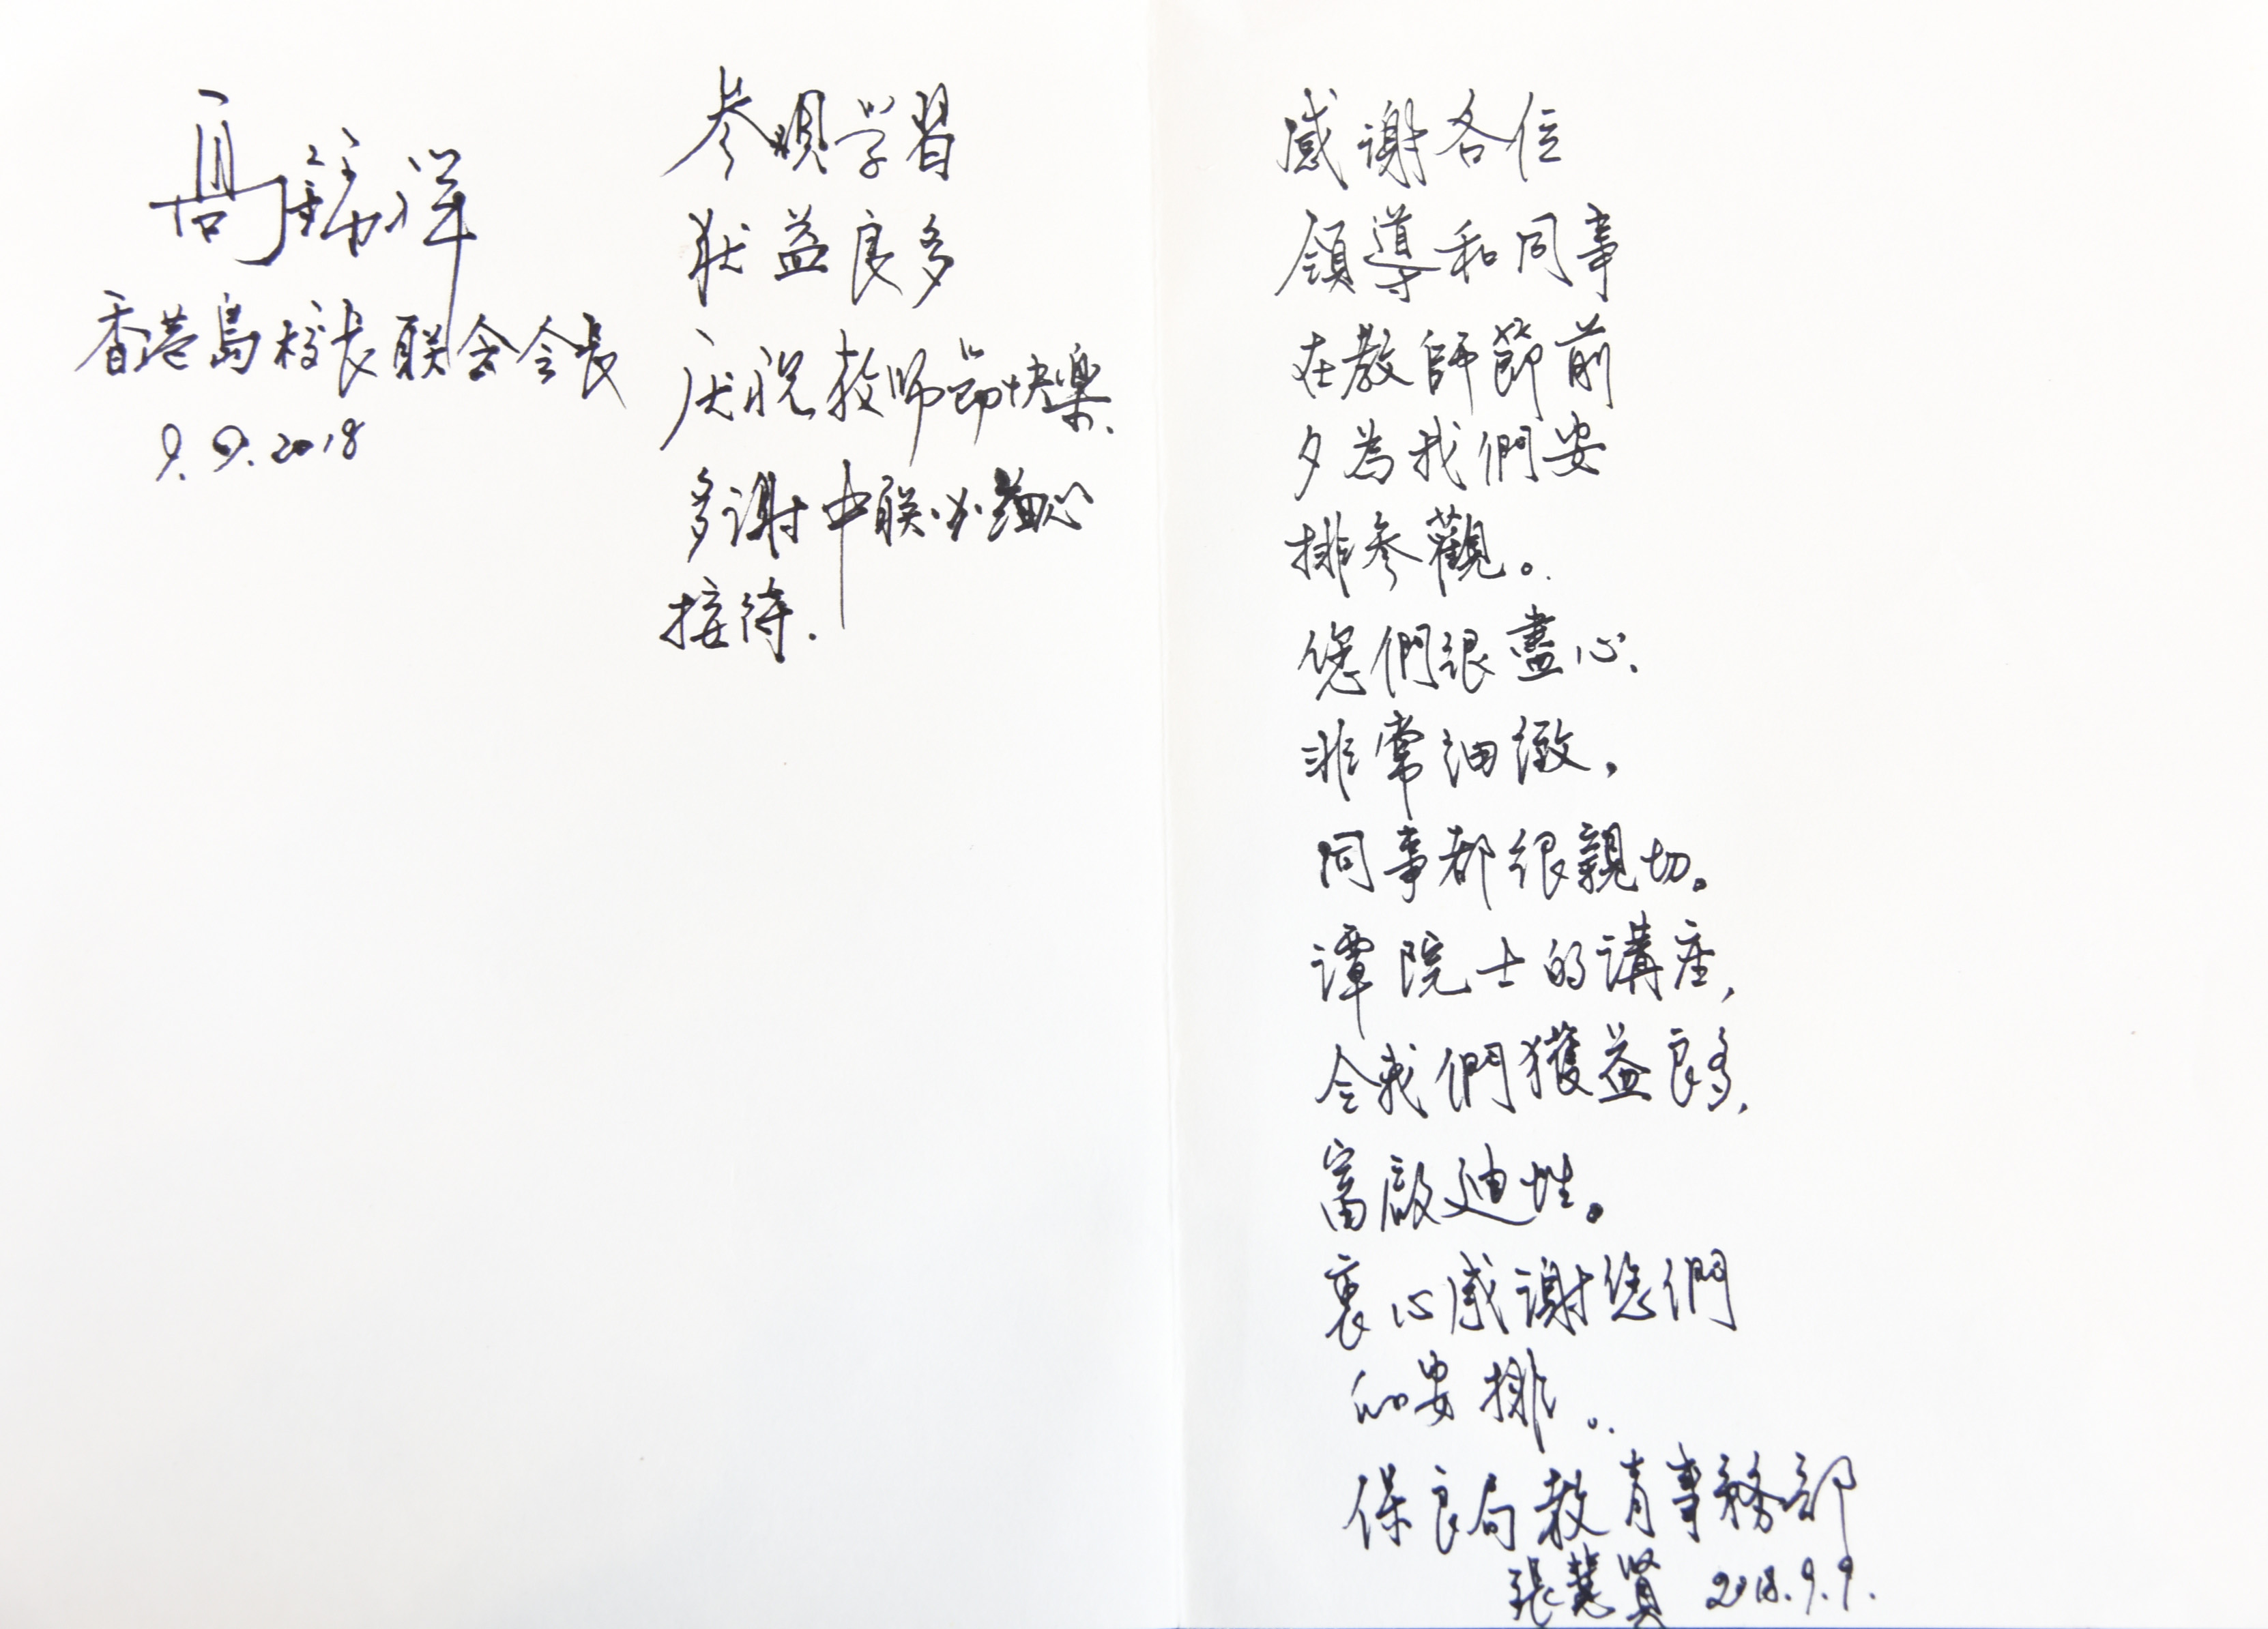 参观学習
获益良多
庆祝教师節快樂.
多谢中联办细心
接待.
高錦祥
香港島校長联会会長
9.9.2018
感謝各位
領導和同事
在教師節前
夕為我們安
排参觀。
您們很盡心、
非常细緻，
同事都很親切。
譚院士的講座，
令我們獲益良多，
富啟迪性。
衷心感謝您們
的安排。
保良局教育事務部
張慧賢 2018.9.9.